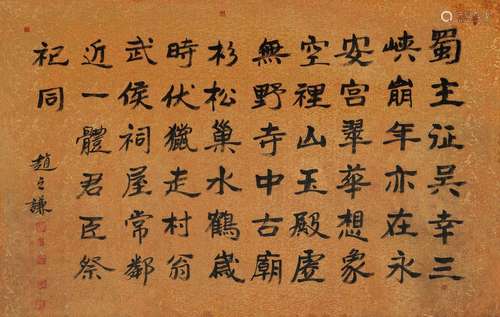 蜀主征吴幸三
峡崩年亦在永
安宫翠華想象
空裡山玉殿虚
無野寺中古廟
杉松巢水鶴歲
時伏獵走村翁
武侯祠屋常鄰
近一體君臣祭
祀同
趙之謙